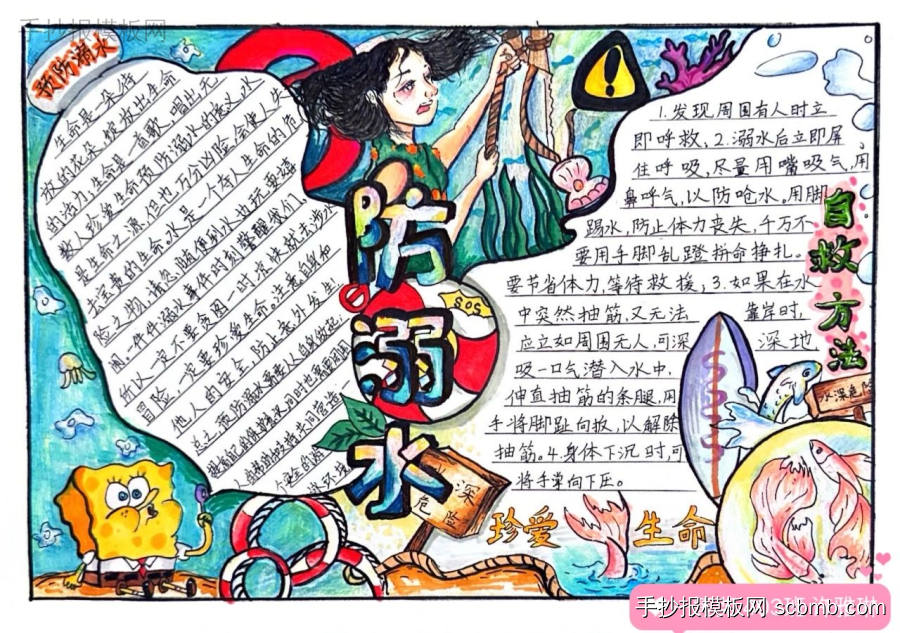 手抄报模板网
预防溺水
生命是一朵待
放的花朵,绽放出生命
的活力,生命是一首歌,唱出无
教人珍爱生命预防溺水的意义水
是生命之源,但也万分凶险,会使人失
去宝贵的生命。水是一个夺人生命的危
险之物,请您随便到水边玩耍嬉
闹。一件件溺水事件时刻警醒我们,
所以一定不要贪图一时凉快就去涉水
冒险,一定要珍爱生命。注意自身和
他人的安全,防止意外发生!
总之,预防溺水需要人自身做起
防溺水
SOS
深
危险
1.发现周围有人时立
即呼救;2.溺水后立即屏
住呼吸,尽量用嘴吸气,用
鼻呼气,以防呛水。用脚
踢水,防止体力丧失,千万不
要用手脚乱蹬拼命挣扎。
要节省体力,等待救援;3.如果在水
中突然抽筋,又无法 靠岸时,
应立如周围无人,可深 深地
吸一口气潜入水中,
伸直抽筋的条腿,用
手将脚趾向扳,以解除
抽筋。4.身体下沉时,可
将手掌向下压。
自救方法
水深危险
珍爱 生命
3班 许雅琳
手抄报模板网 scbmb.com